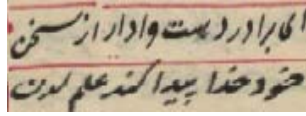 ای برادر دست وادار از سخن
خود خدا پیدا کند علم لدن